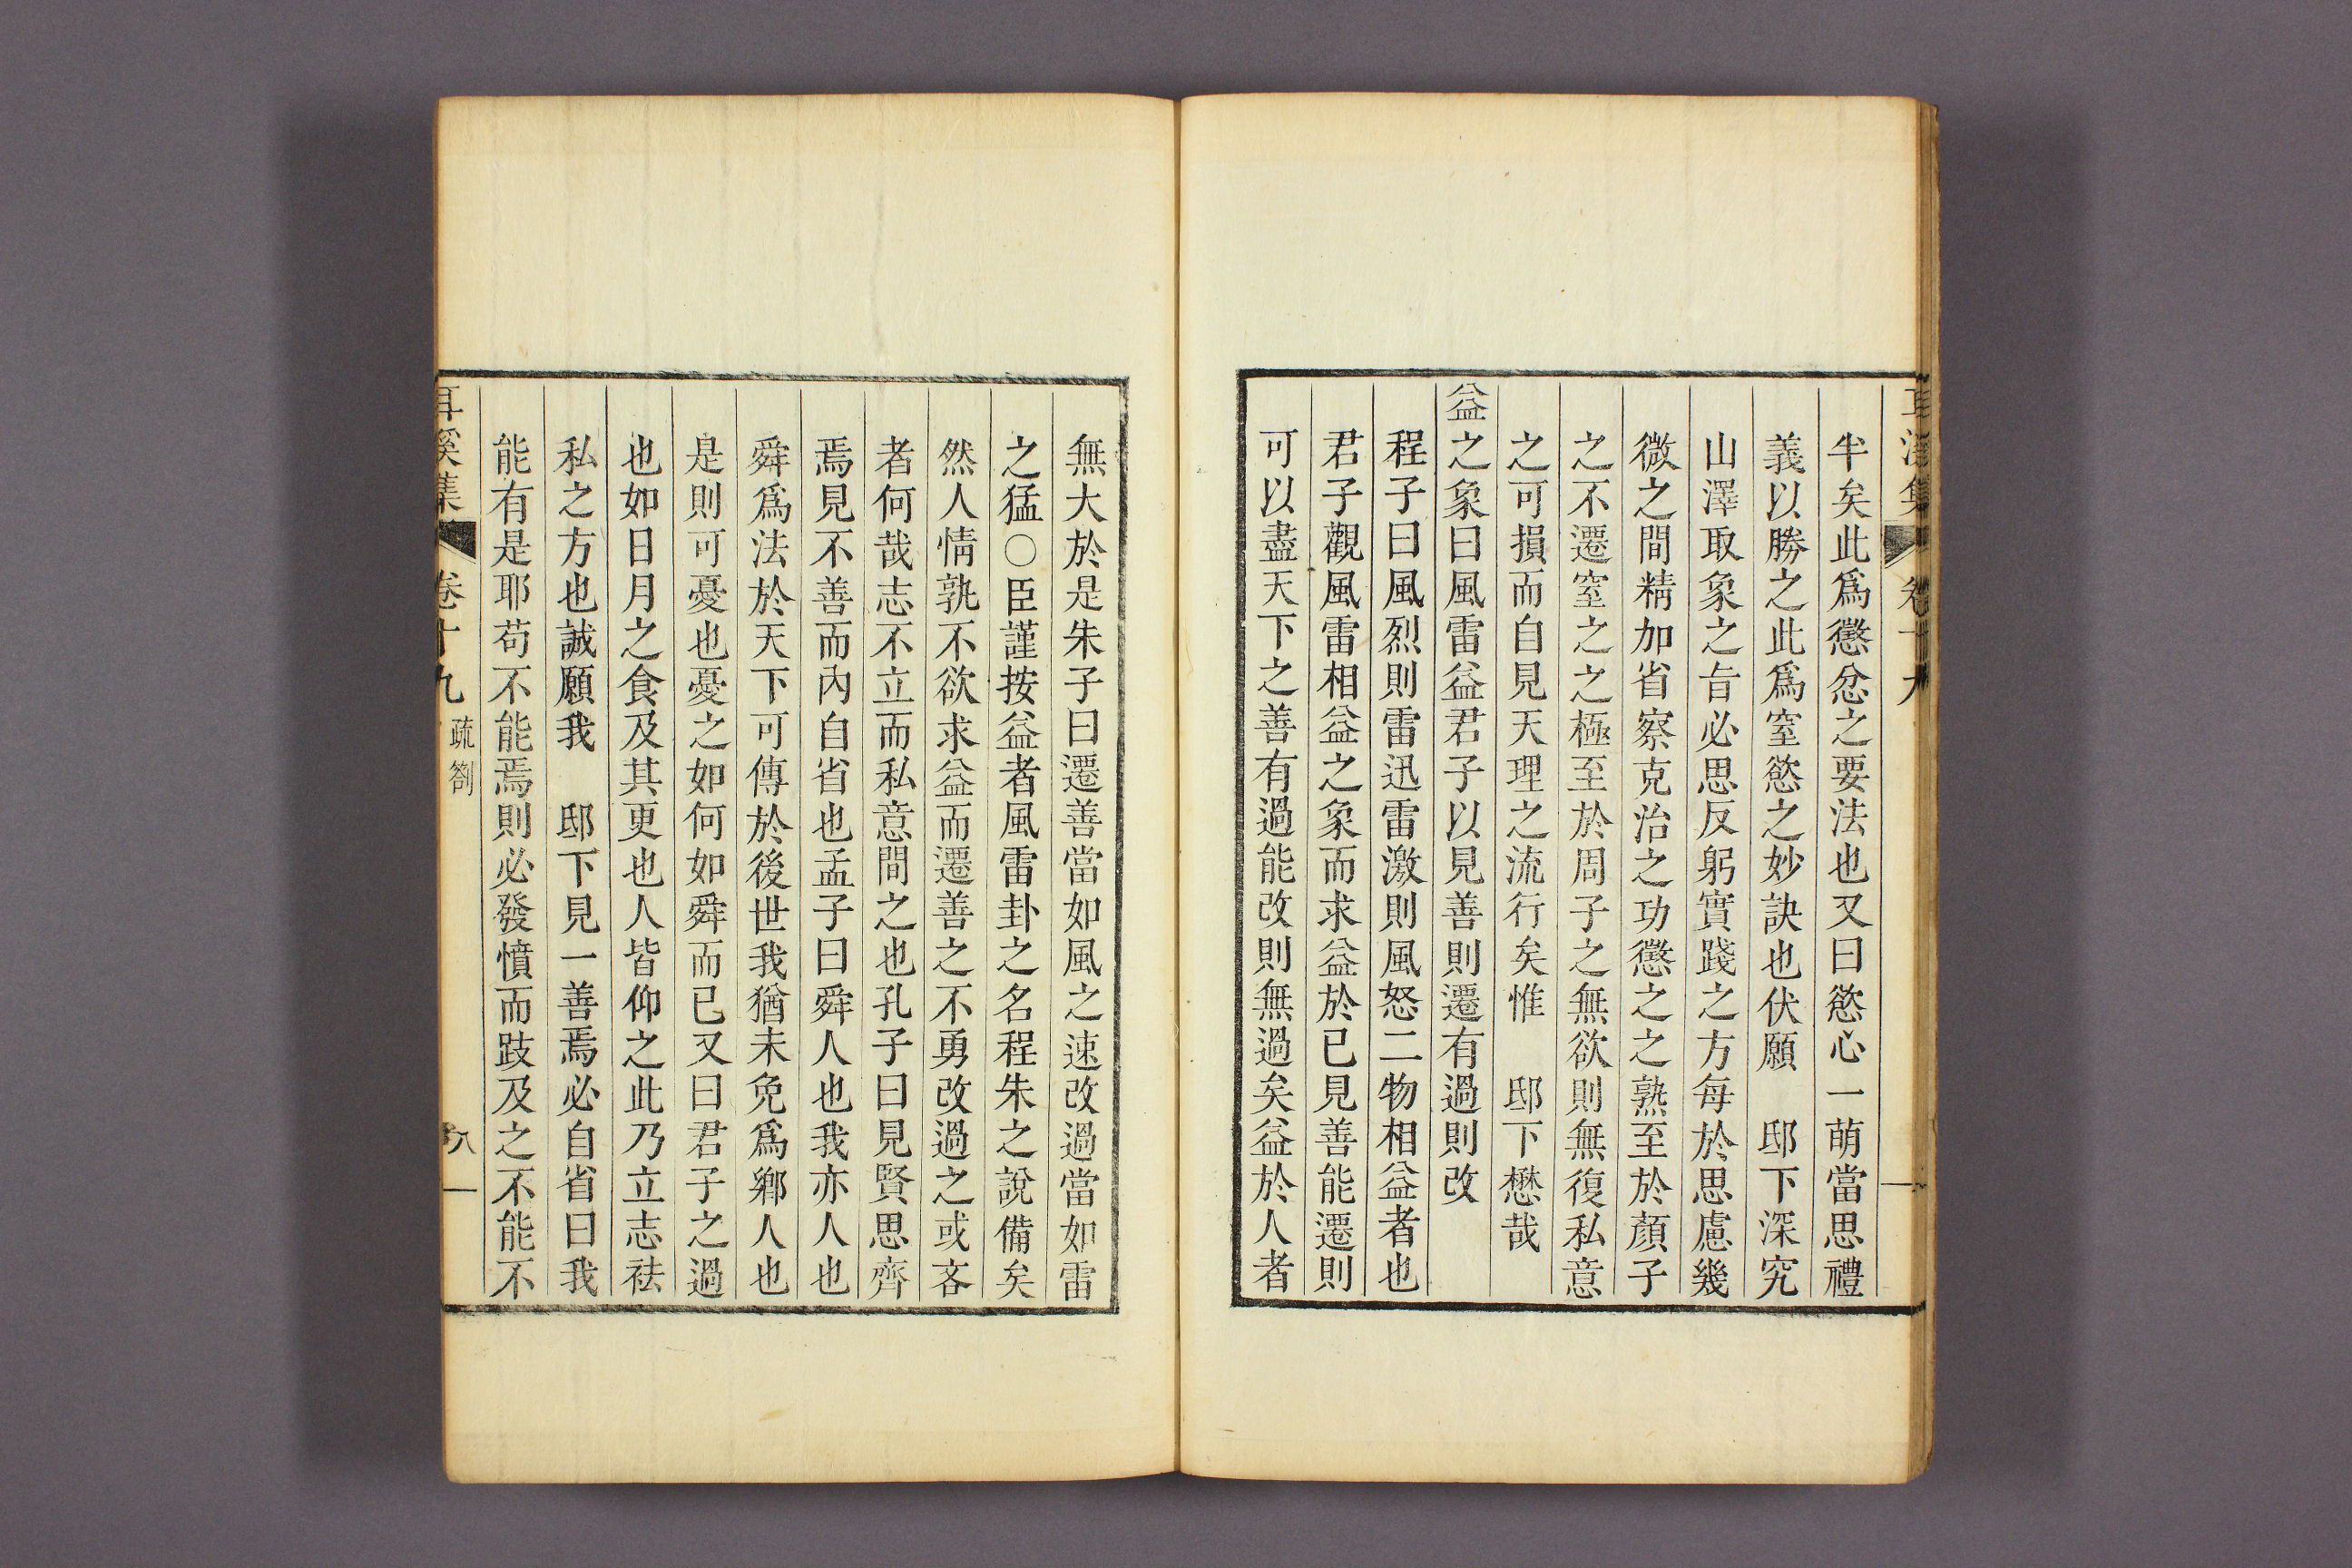 耳溪集 卷十九
半矣此爲懲忿之要法也又曰慾心一萌當思禮
義以勝之此爲窒慾之妙訣也伏願　邸下深究
山澤取象之旨必思反躬實踐之方每於思慮幾
微之間精加省察克治之功懲之之熟至於顏子
之不遷窒之之極至於周子之無欲則無復私意
之可損而自見天理之流行矣惟　邸下懋哉
益之象曰風雷益君子以見善則遷有過則改
程子曰風烈則雷迅雷激則風怒二物相益者也
君子觀風雷相益之象而求益於已見善能遷則
可以盡天下之善有過能改則無過矣益於人者
無大於是朱子曰遷善當如風之速改過當如雷
之猛○臣謹按益者風雷卦之名程朱之說備矣
然人情孰不欲求益而遷善之不勇改過之或吝
者何哉志不立而私意間之也孔子曰見賢思齊
焉見不善而內自省也孟子曰舜人也我亦人也
舜爲法於天下可傳於後世我猶未免爲鄕人也
是則可憂也憂之如何如舜而已又曰君子之過
也如日月之食及其更也人皆仰之此乃立志祛
私之方也誠願我　邸下見一善焉必自省曰我
能有是耶苟不能焉則必發憤而跂及之不能不
耳溪集 卷十九 疏劄 八